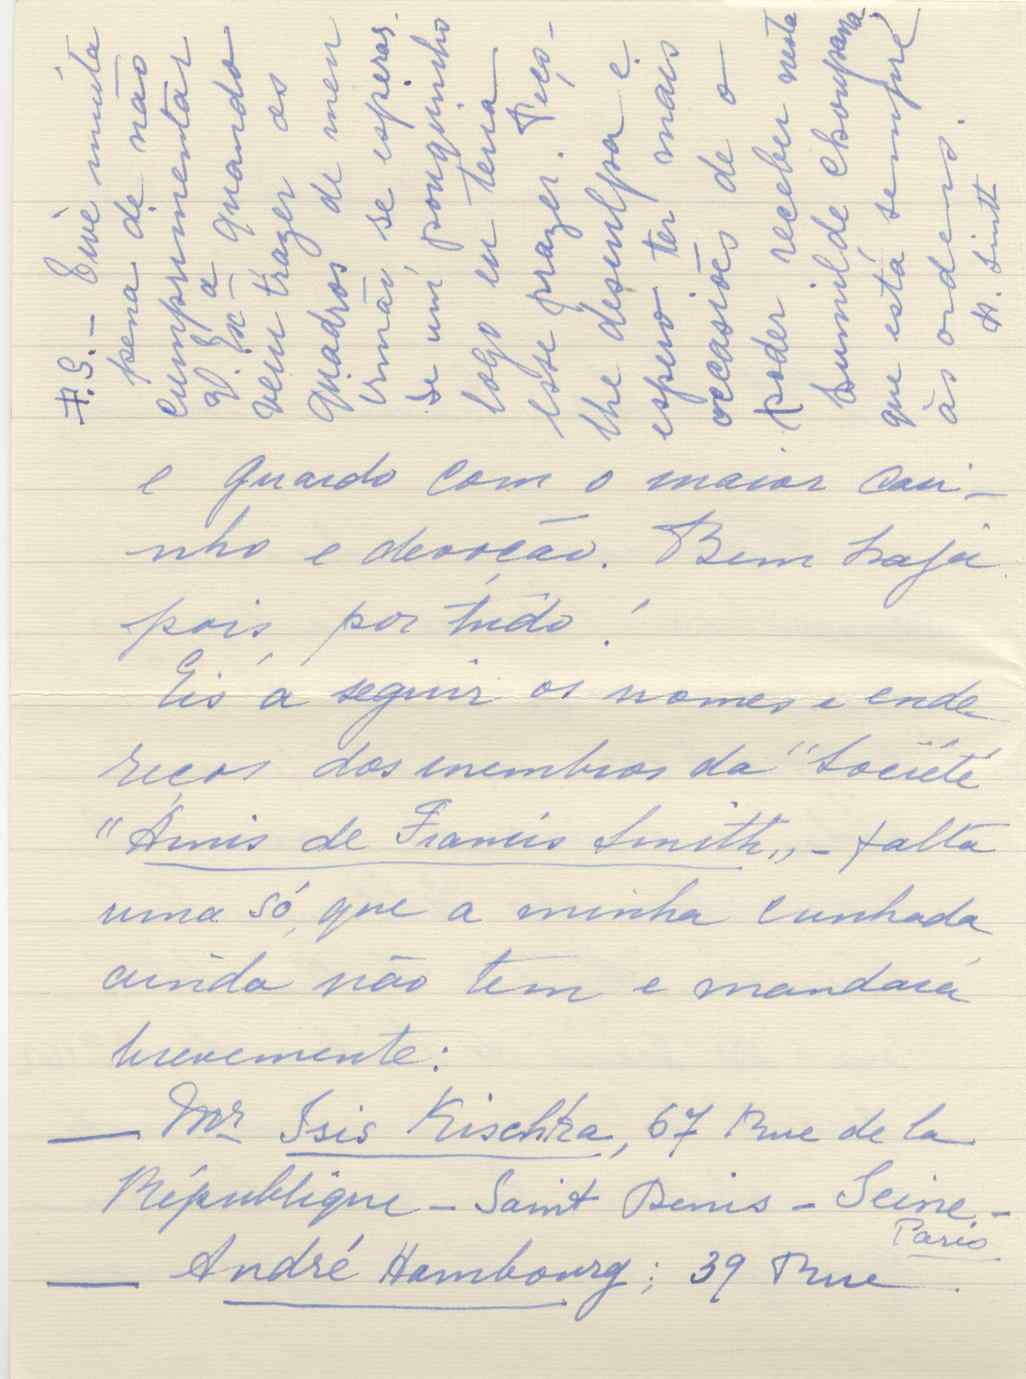 P.S. — Tive muita
pena de não
cumprimentar
V. Exª quando
veiu trazer os
quadros de meu
irmão, se esperas-
se um pouquinho
logo eu teria
esse prazer. Peço-
lhe desculpa e
espero ter mais
occasiões de o
poder receber nesta
humilde choupana,
que está sempre
às ordens.
A. Smith
e guardo com o maior cari-
nho e devoção. Bem haja
pois, por tudo!
Eis a seguir os nomes e ende-
reços dos membros da "Société
"Amis de Francis Smith" — falta
uma só, que a minha cunhada
ainda não tem e mandará
brevemente:
— Mr Isis Kischka, 67 Rue de la
République — Saint Denis — Seine —
Paris
— André Hambourg; 39 Rue